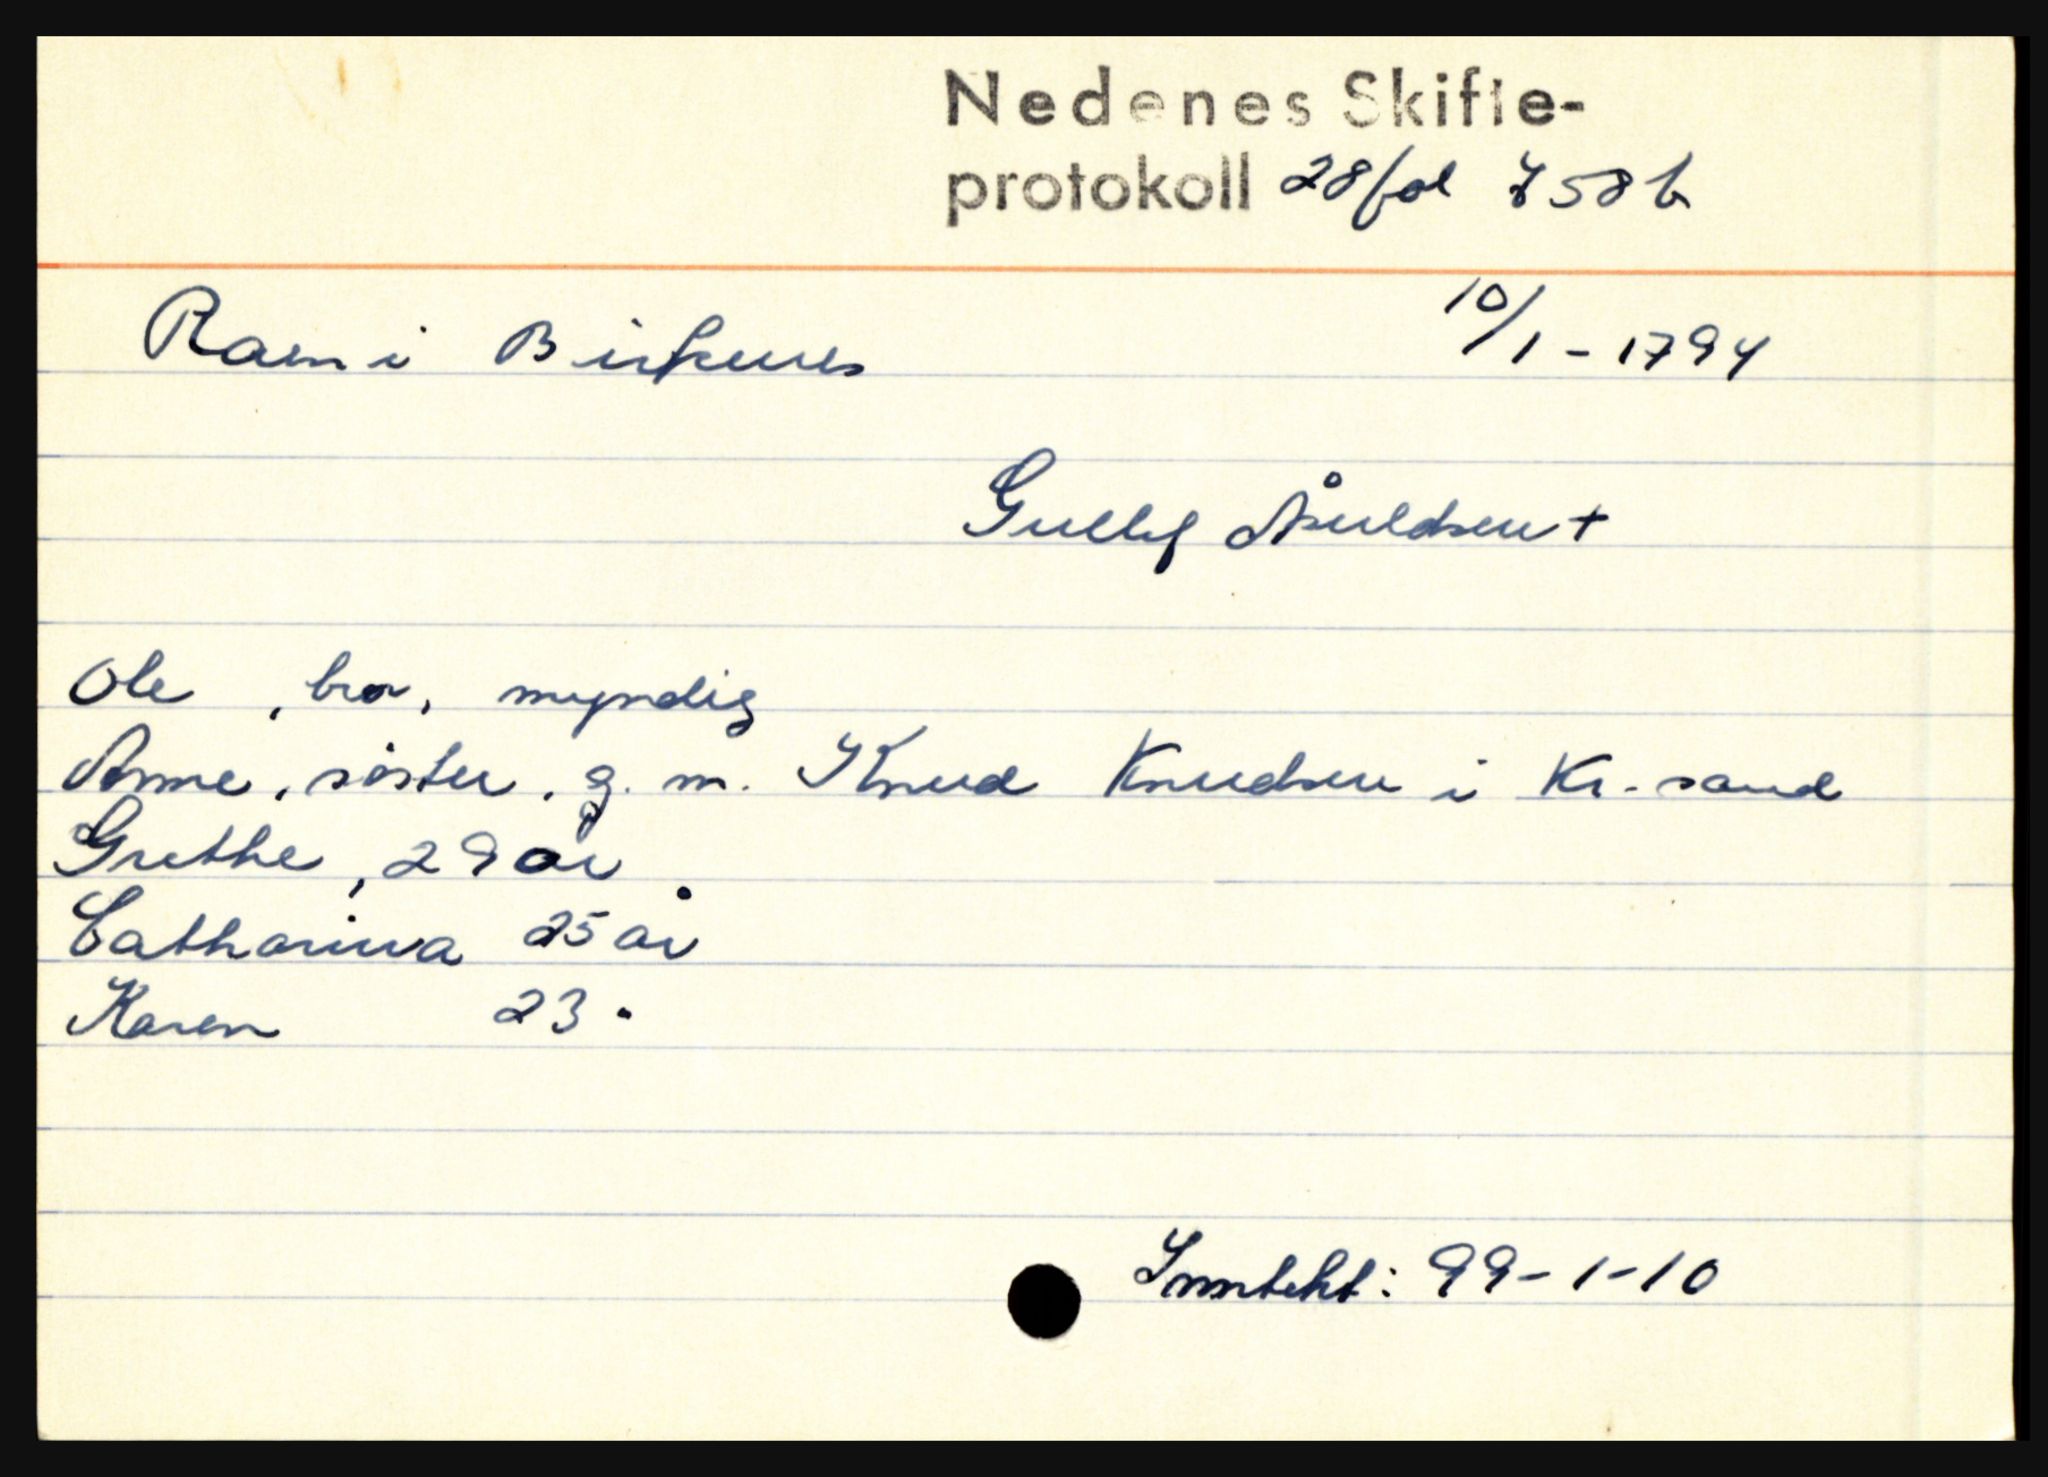 Nedenes Skifte-
protokoll 28 fol 758 b
Raen i Birkenes 10/1 - 1794
Gullef Åsuldsen +
Ole , bror, myndig
Anne, søster, g. m. Knud Knudsen i Kr. sand
Grethe, 29 år
Catharina 25 år
Karen 23 "
Inntekt: 99-1-10